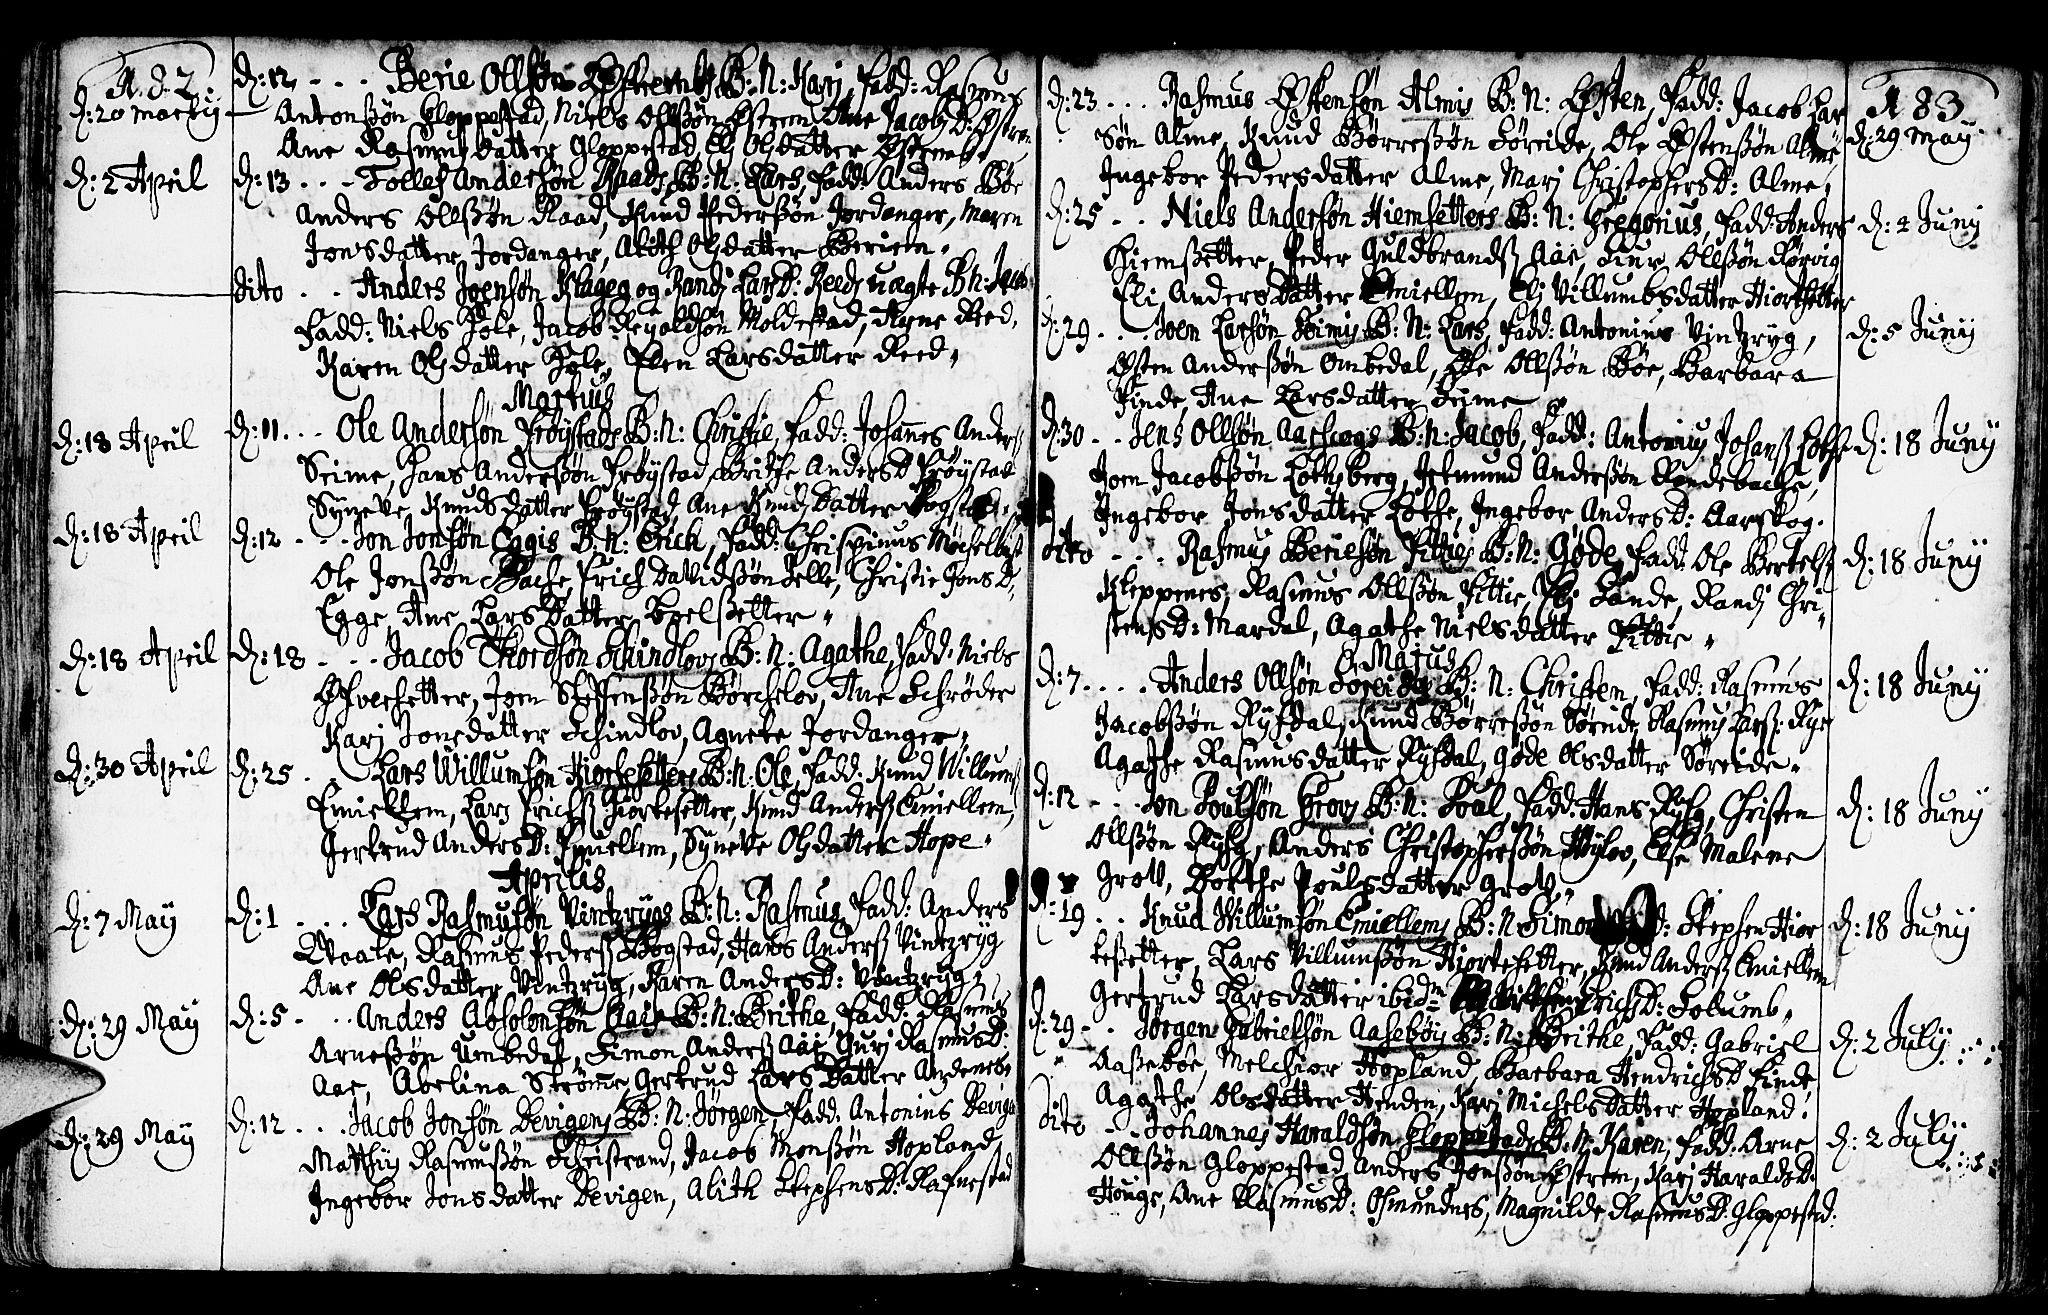 N. 82.
D: 20 Martij
D: 12 - - - Berie Ollsøn Østrembs B: N: Karj, Fadd: Rasmus
Antonßøn Gloppestad, Niels Ollßøn Østrem Ane Jacobs D: Østrem
Ane Rasmus datter Gloppestad, Elj Ols datter Østrembs
D: 2 April
D: 13 - - - Tolles Andersøn Raads B: N: Lars, Fadd: Anders Bøe
Anders Ollßøn Raad, Knud Pederßøn Jordanger, Maren
Jonsdatter Jordanger, Alith Olsdatter Berien.
Dito - - Anders Joensøn og Randj Lars D: Reeds uægte B: N: Jacob
Fadd: Niels Hole, Jacob Reyoldsøn Moldestad, Agne Reed,
Karen Olsdatter Hole, Elen Larsdatter Reed.
Martius
D: 18 April
D: 11 - - - Ole Andersøn Frøystads B: N: Christie, Fadd: Johannes Anderß
Seime, Hans Anderßøn Frøystad, Brithe Anders D: Frøystad
Syneve Knuds datter Frøystad Ane Knuds datter
D: 18 April
D: 12 - - - Jon Jonsøn Eggis B: N: Erich, Fadd: Chrispinus
Ole Jonßøn Bache, Erich Davidßøn Selle, Christie Jons D:
Egge, Ane Lars datter
D: 18 April
D: 18 - - - Jacob Thordsøn Schindlovs B: N: Agathe, Fadd: Niels
Øfresetter, Joen Steffenßøn Børchelov, Ane Schrøder
Karj Jonsdatter Schindlov, Agnete Jordanger.
D: 30 April
D: 25 - - Lars Willumsøn Hiortesetters B: N: Ole, Fadd: Knud Willumß
Emiellem, Lars Erichß Hiortesetter, Knud Anderß Emiellem,
Gertrud Anders D: Emiellem, Syneve Olsdatter Hope.
Aprilis
D: 7 May
D: 1 - - - Lars Rasmusøn Vintzrygs B: N: Rasmus, Fadd: Anders
Rasmus Pederß Bogstad, Hans Anderß Vintzryg
Ane Olsdatter Vintzryg, Karen Anders D: Vintzryg
D: 29 May
D: 5 - - - Anders Absolonsøn Aais B: N: Brithe, Fadd: Rasmus
Arneßøn Umbedal, Simon Anderß Aae, Gurj Rasmus D:
Aae, Abelina Strømme, Gertrud Lars Datter Ardenebs
D: 29 May
D: 12 - - - Jacob Jonsøn Devigens B: N: Jørgen, Fadd: Antonius Devige
Matthijs Rasmußøn Schristrand, Jacob Monßøn Hopland
Ingebor Jonsdatter Devigen, Alith Stephens D: Rafnestad
N 83
D: 29 May
D: 23 - - - Rasmus Østensøn Almis B: N: Østen, Fadd: Jacob Lar
søn Alme, Knud Børreßøn Søreide, Ole Østenßøn Alme
Ingebor Pedersdatter Alme, Marj Christophers D: Alme.
D: 4 Junij
D: 25 - - Niels Andersøn Hiemsetters B: N: Gregorius, Fadd: Anders
Hiemßetter, Peder Guldbrandß Aae, Siur Ollßøn Rørvig
Eli Anders Datter Emiellem, Elj Villumbsdatter Hiortesetter
D: 5 Junij
D: 29 - - - Joen Larsøn Seimis B: N: Lars, Fadd: Antonius Vintzryg,
Østen Anderßøn Ombedal, Ole Ollßøn Bøe, Barbara
Finde, Ane Larsdatter Seime
D: 18 Junij
D: 30 - - Jens Ollsøn Aarschogs B: N: Jacob, Fadd: Antonius Johanß Lothe
Joen Jacobßøn Lothsberg, Jetmund Anderßøn Rondebache,
Ingebor Jonsdatter Lothe, Ingebor Anders D: Aarskog.
D: 18 Junij
Dito - - - Rasmus Beriesøn Fitties B: N: Gøde, Fadd: Ole Bertelß
Kleppenes, Rasmus Ollßøn Fittie, Elj Sande, Randj Chri-
stens D: Mardal, Agathe Nielsdatter Fittie.
Majus
D: 18 Junij
D: 7 - - - - Anders Ollsøn Søreids B: N: Christen, Fadd: Rasmus
Jacobßøn Rysdal, Knud Børreßøn Søreide, Rasmus Larsß: Ryg
Agathe Rasmusdatter Rysdal, Gøde Olsdatter Søreide.
D: 18 Junij
D: 12 - - - Jon Poulsøn Grovs B: N: Poul, Fadd: Hans Rysg, Christen
Ollßøn Rysg, Anders Christopherßøn Høylov, Else Malene
Grov, Dorthe Poulsdatter Groth.
D: 18 Junij
D: 19 - - Knud Willumsøn Emiellems B: N: Simon Stephen Hior
tesetter, Lars Villumßøn Hiortesetter, Knud Anderß Emiellem
Gertrud Larsdatter ibidm Erichs D: Solumb.
D: 2 Julij
D: 29 - - Jørgen Gabrielsøn Aasebøis B: N: Brithe, Fadd: Gabriel
Aaßebøe, Melchior Hopland, Barbara Hendrichs D: Finde
Agathe Olsdatter Henden, Karj Michels Datter Hopland.
D: 2 Julij
Dito - - Johannes Haraldsøn Gloppestads B: N: Karen, Fadd: Arne
Ollßøn Gloppestad, Anders Jonßøn Østrem, Karj Haralds D:
Houge, Ane Rasmus D: Osmundnes, Magnilde Rasmus D: Gloppestad.